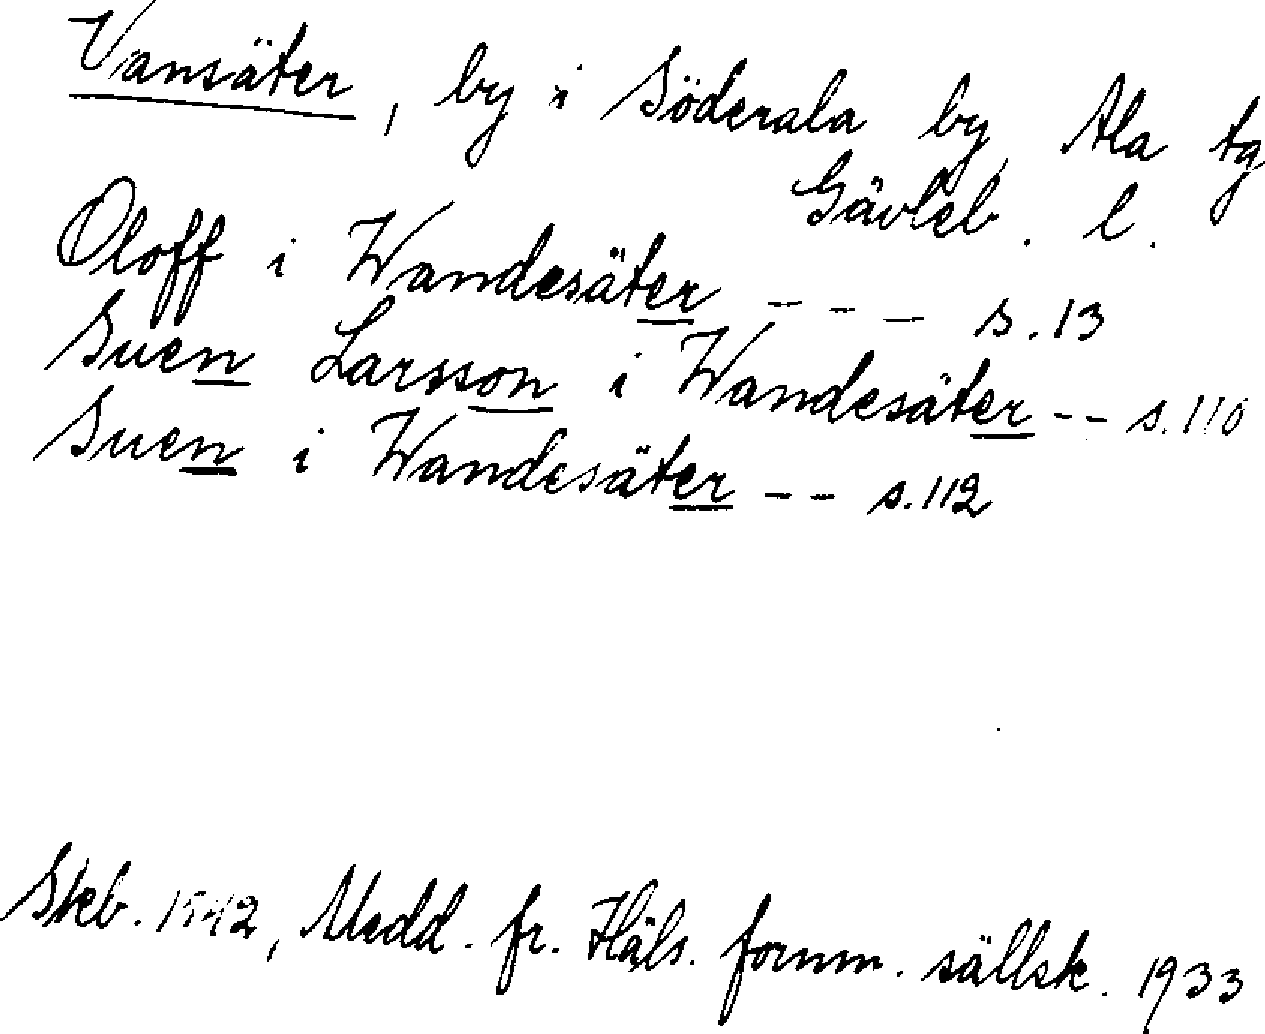 Vansäter, by i Söderala by, Ala tg
Gävleb. l.
Oloff i Wandesäter --- s. 13
Suen Larsson i Wandesäter -- s. 110
Suen i Wandesäter -- s. 112
Skb. 1542, Medd. fr. Häls. fornm. sällsk. 1933